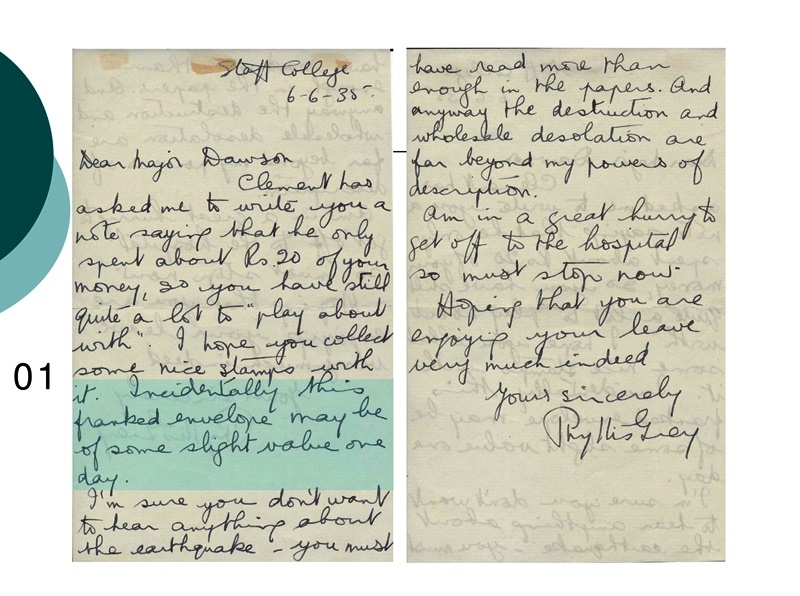 Staff College
6-6-35.
Dear Major Dawson
Clement has
asked me to write you a
note saying that he only
spent about Rs.20 of your
money, so you have still
quite a lot to "play about
with". I hope you collect
some nice stamps with
it. Incidentally this
franked envelope may be
of some slight value one
day.
I'm sure you don't want
to hear anything about
the earthquake - you must
have read more than
enough in the papers. And
anyway the destruction and
wholesale desolation are
far beyond my powers of
description.
Am in a great hurry to
get off to the hospital
so must stop now.
Hoping that you are
enjoying your leave
very much indeed
Yours sincerely
Phyllis Grey
01